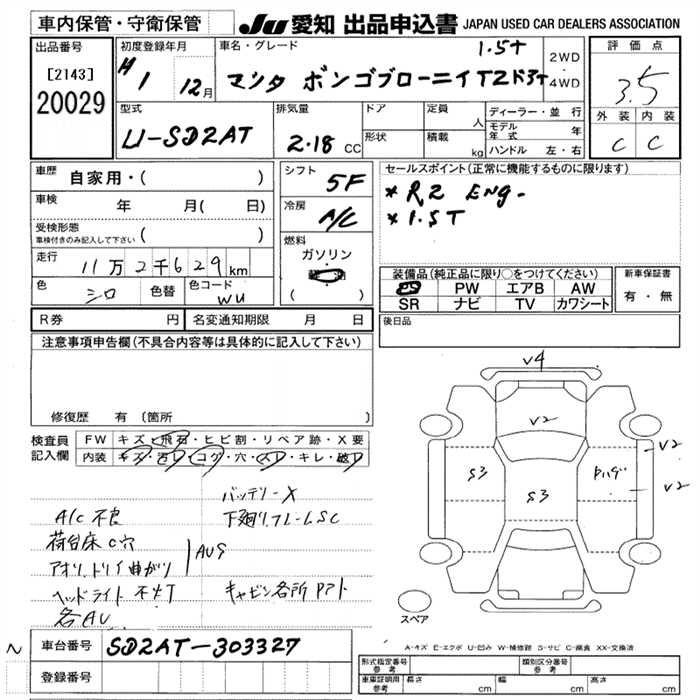 車内保管・守衛保管
JU 愛知 出品申込書 JAPAN USED CAR DEALERS ASSOCIATION
出品番号
[2143]
20029
初度登録年月
H1 12月
車名・グレード
1.5T
マツタ ボンゴブローニイT2ド3T
2WD
・
4WD
評価点
3.5
外装 内装
C C
型式
U-SD2AT
排気量
2.18 CC
ドア
形状
定員 人
積載 kg
ディーラー・並行
モデル年式 年
ハンドル 左・右
車歴 自家用・( )
車検 年 月( 日)
受検形態
車検付きのみ記入して下さい ( )
走行 11万2千629km
色 シロ 色替 色コード WU
シフト 5F
冷房 A/C
燃料
ガソリン
( )
セールスポイント(正常に機能するものに限ります)
* R2 ENG-
* 1.5T
装備品(純正品に限り○をつけてください)
PS PW エアB AW
SR ナビ TV カワシート
新車保証書
有・無
R券 円 名変通知期限 月 日
後日品
注意事項申告欄(不具合内容等は具体的に記入して下さい)
修復歴 有〔箇所
検査員記入欄
FW キズ・飛石・ヒビ割・リペア跡・X要
内装 キズ・汚レ・コゲ・穴・スレ・キレ・破レ
バッテリーX
A/C 不良
下廻リ,フレームSC
荷台床C穴
アオリ,トリイ曲がリ AUS
ヘッドライト 不灯
キャビン各所Pアト
各AU
V4
V2
S3
S3
Pハゲ
V2
V2
スペア
A-キズ E-エクボ U-凹み W-補修跡 S-サビ C-腐食 XX-交換済
N
車台番号 SD2AT-303327
登録番号
形式指定番号
参考
類別区分番号
参考
車庫証明用
参考
長さ cm 幅 cm 高さ cm